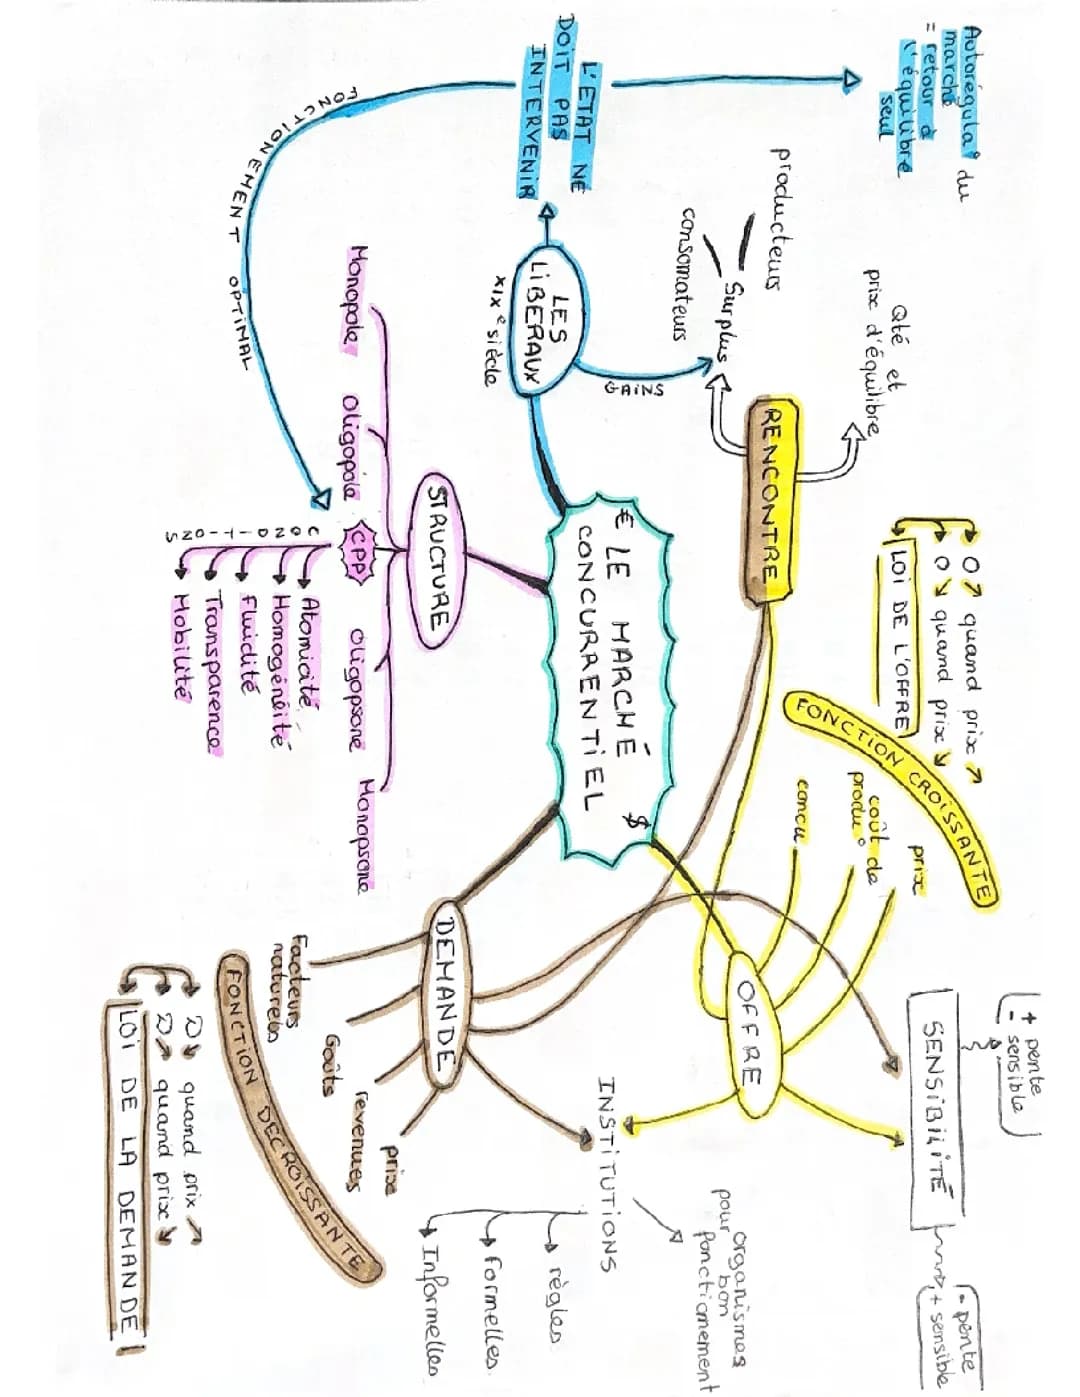 Autorégula° du
marché
= retour à
l'équilibre
seul
L'ETAT NE
DOIT PAS
INTERVENIR
FONCTIONEMENT OPTIMAL
LES
LIBERAUX
XIXe siècle
GAINS
producteurs
consomateurs
Surplus
Qté et
prix d'équilibre
RENCONTRE
€ LE MARCHÉ $
CONCURRENTIEL
STRUCTURE
Monopole
Oligopole
CPP
Oligopsone
Monopsone
CONDITIONS
Atomicité
Homogénéité
Fluidité
Transparence
Mobilité
O ↗ quand prix ↗
O ↘ quand prix ↘
LOI DE L'OFFRE
FONCTION CROISSANTE
prix
coût de
produ°
concu
OFFRE
SENSIBILITÉ
+ pente
- sensible
- pente
+ sensible
DEMANDE
Facteurs
naturels
Goûts
revenues
prix
FONCTION DECROISSANTE
D ↘ quand prix ↗
D ↗ quand prix ↘
LOI DE LA DEMANDE !
INSTITUTIONS
organismes
pour bon
fonctionnement
règles
formelles
Informelles